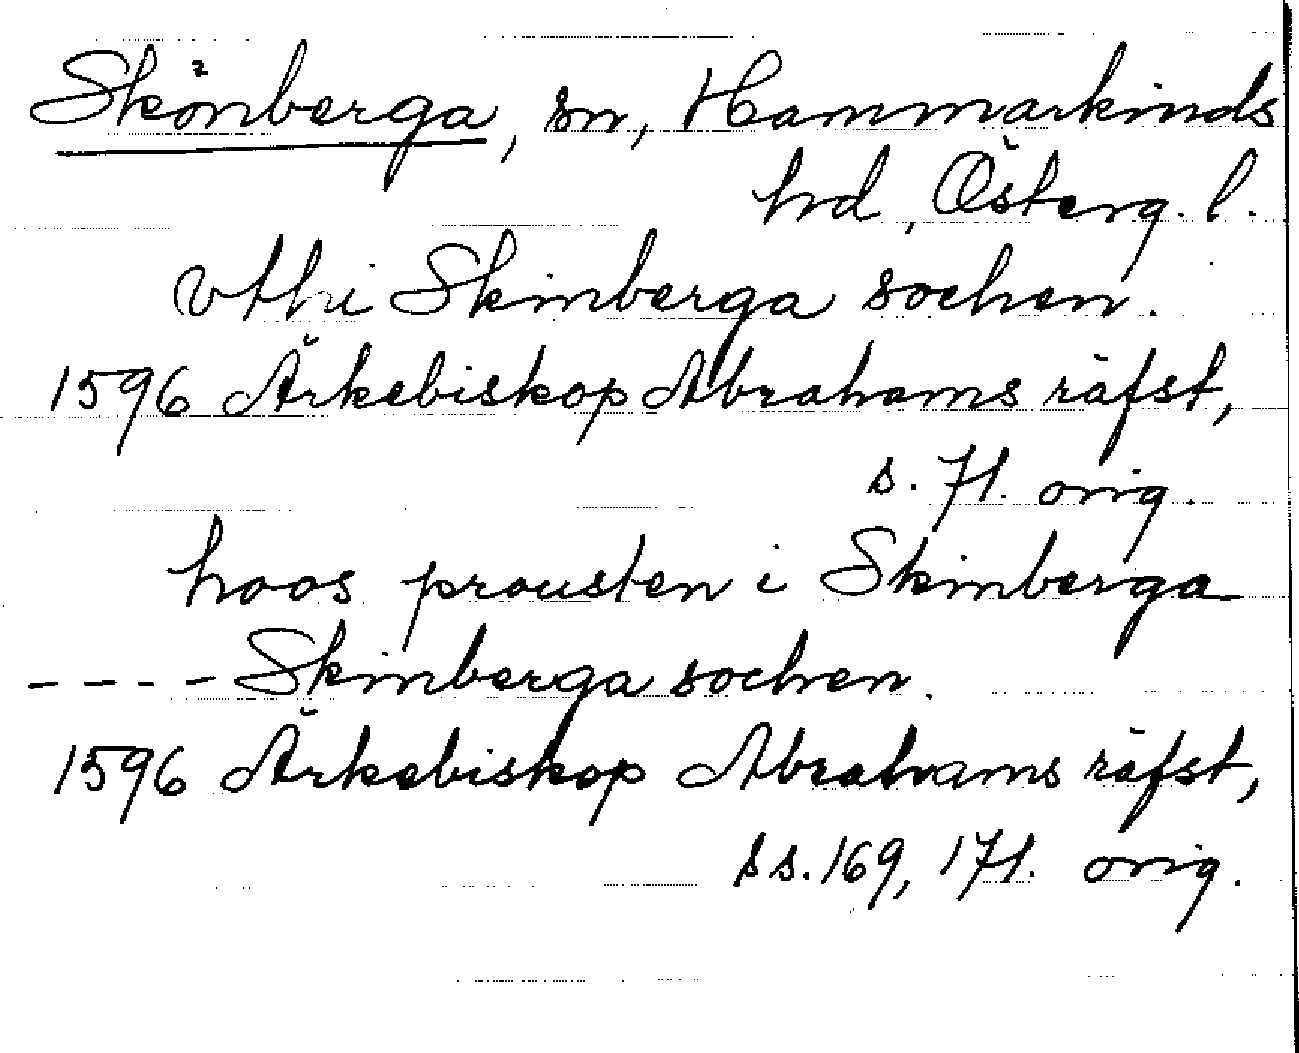 Skönberga, sn, Hammarkinds
hd, Österg. l.
vthi Skinberga sochen.
1596 Ärkebiskop Abrahams räfst,
s. 71. orig.
hoos prousten i Skinberga
---- Skinberga sochen.
1596 Ärkebiskop Abrahams räfst,
ss. 169, 171. orig.